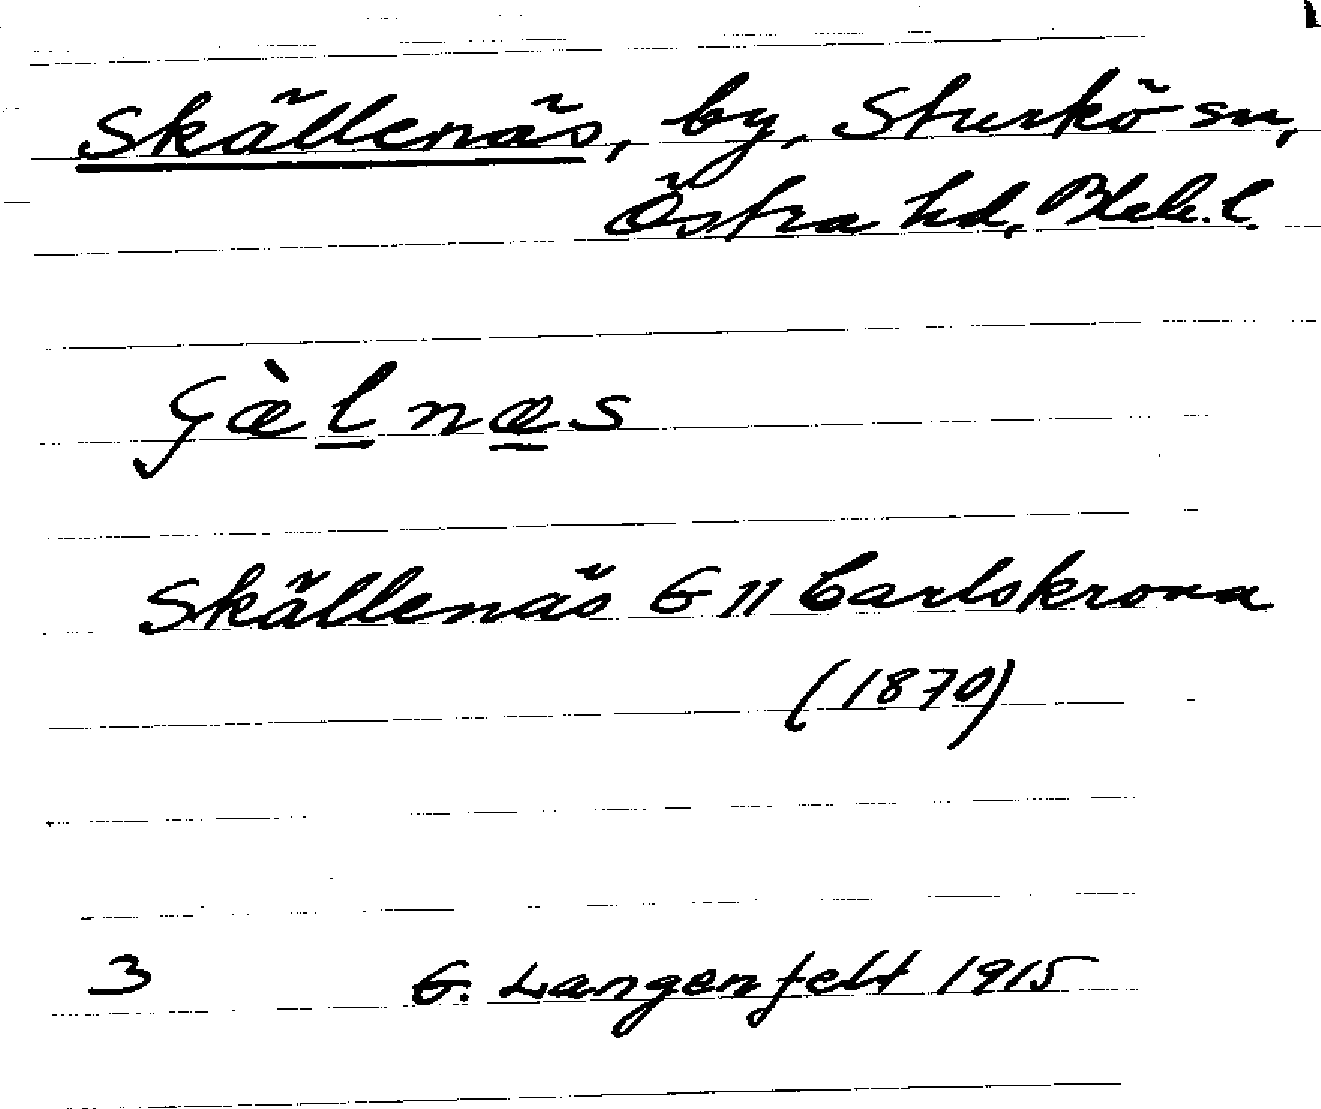 Skällenäs, by, Sturkö sn,
Östra hd, Blek. l.
Skällenäs G II Carlskrona
(1870)
3 G. Langenfelt 1915